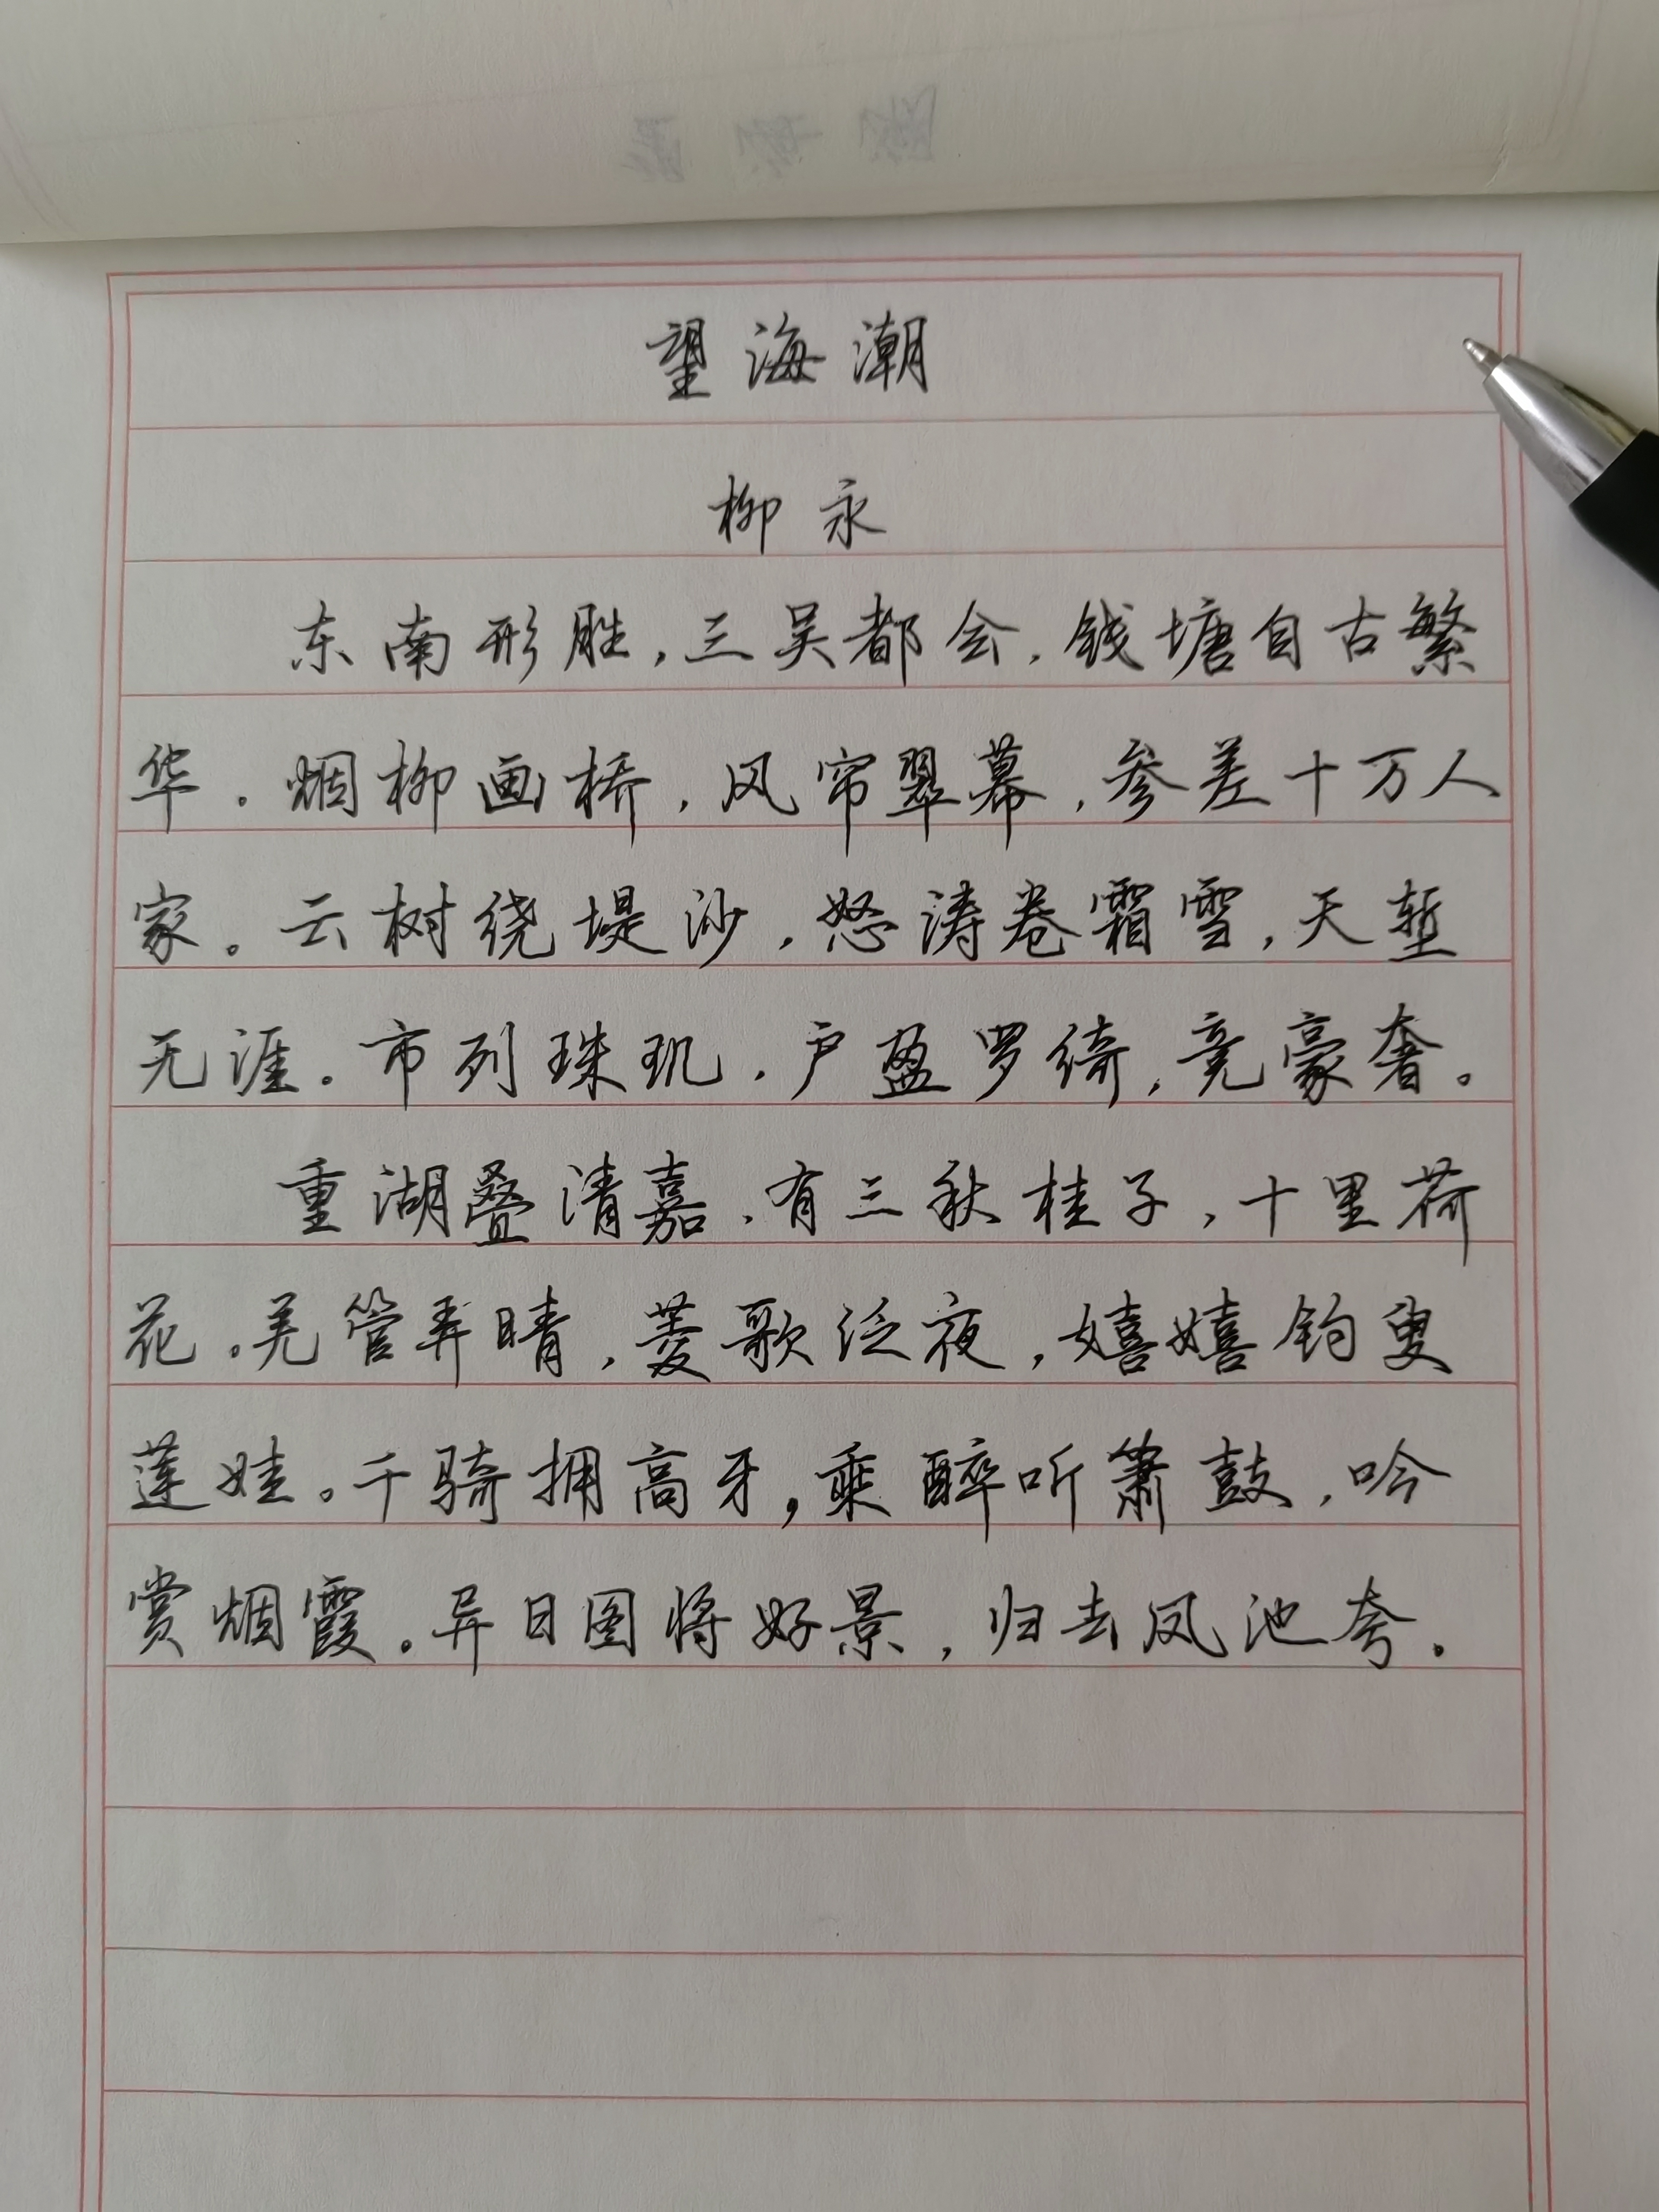 望海潮
柳永
东南形胜，三吴都会，钱塘自古繁
华。烟柳画桥，风帘翠幕，参差十万人
家。云树绕堤沙，怒涛卷霜雪，天堑
无涯。市列珠玑，户盈罗绮，竞豪奢。
重湖叠清嘉，有三秋桂子，十里荷
花。羌管弄晴，菱歌泛夜，嬉嬉钓叟
莲娃。千骑拥高牙，乘醉听箫鼓，吟
赏烟霞。异日图将好景，归去凤池夸。